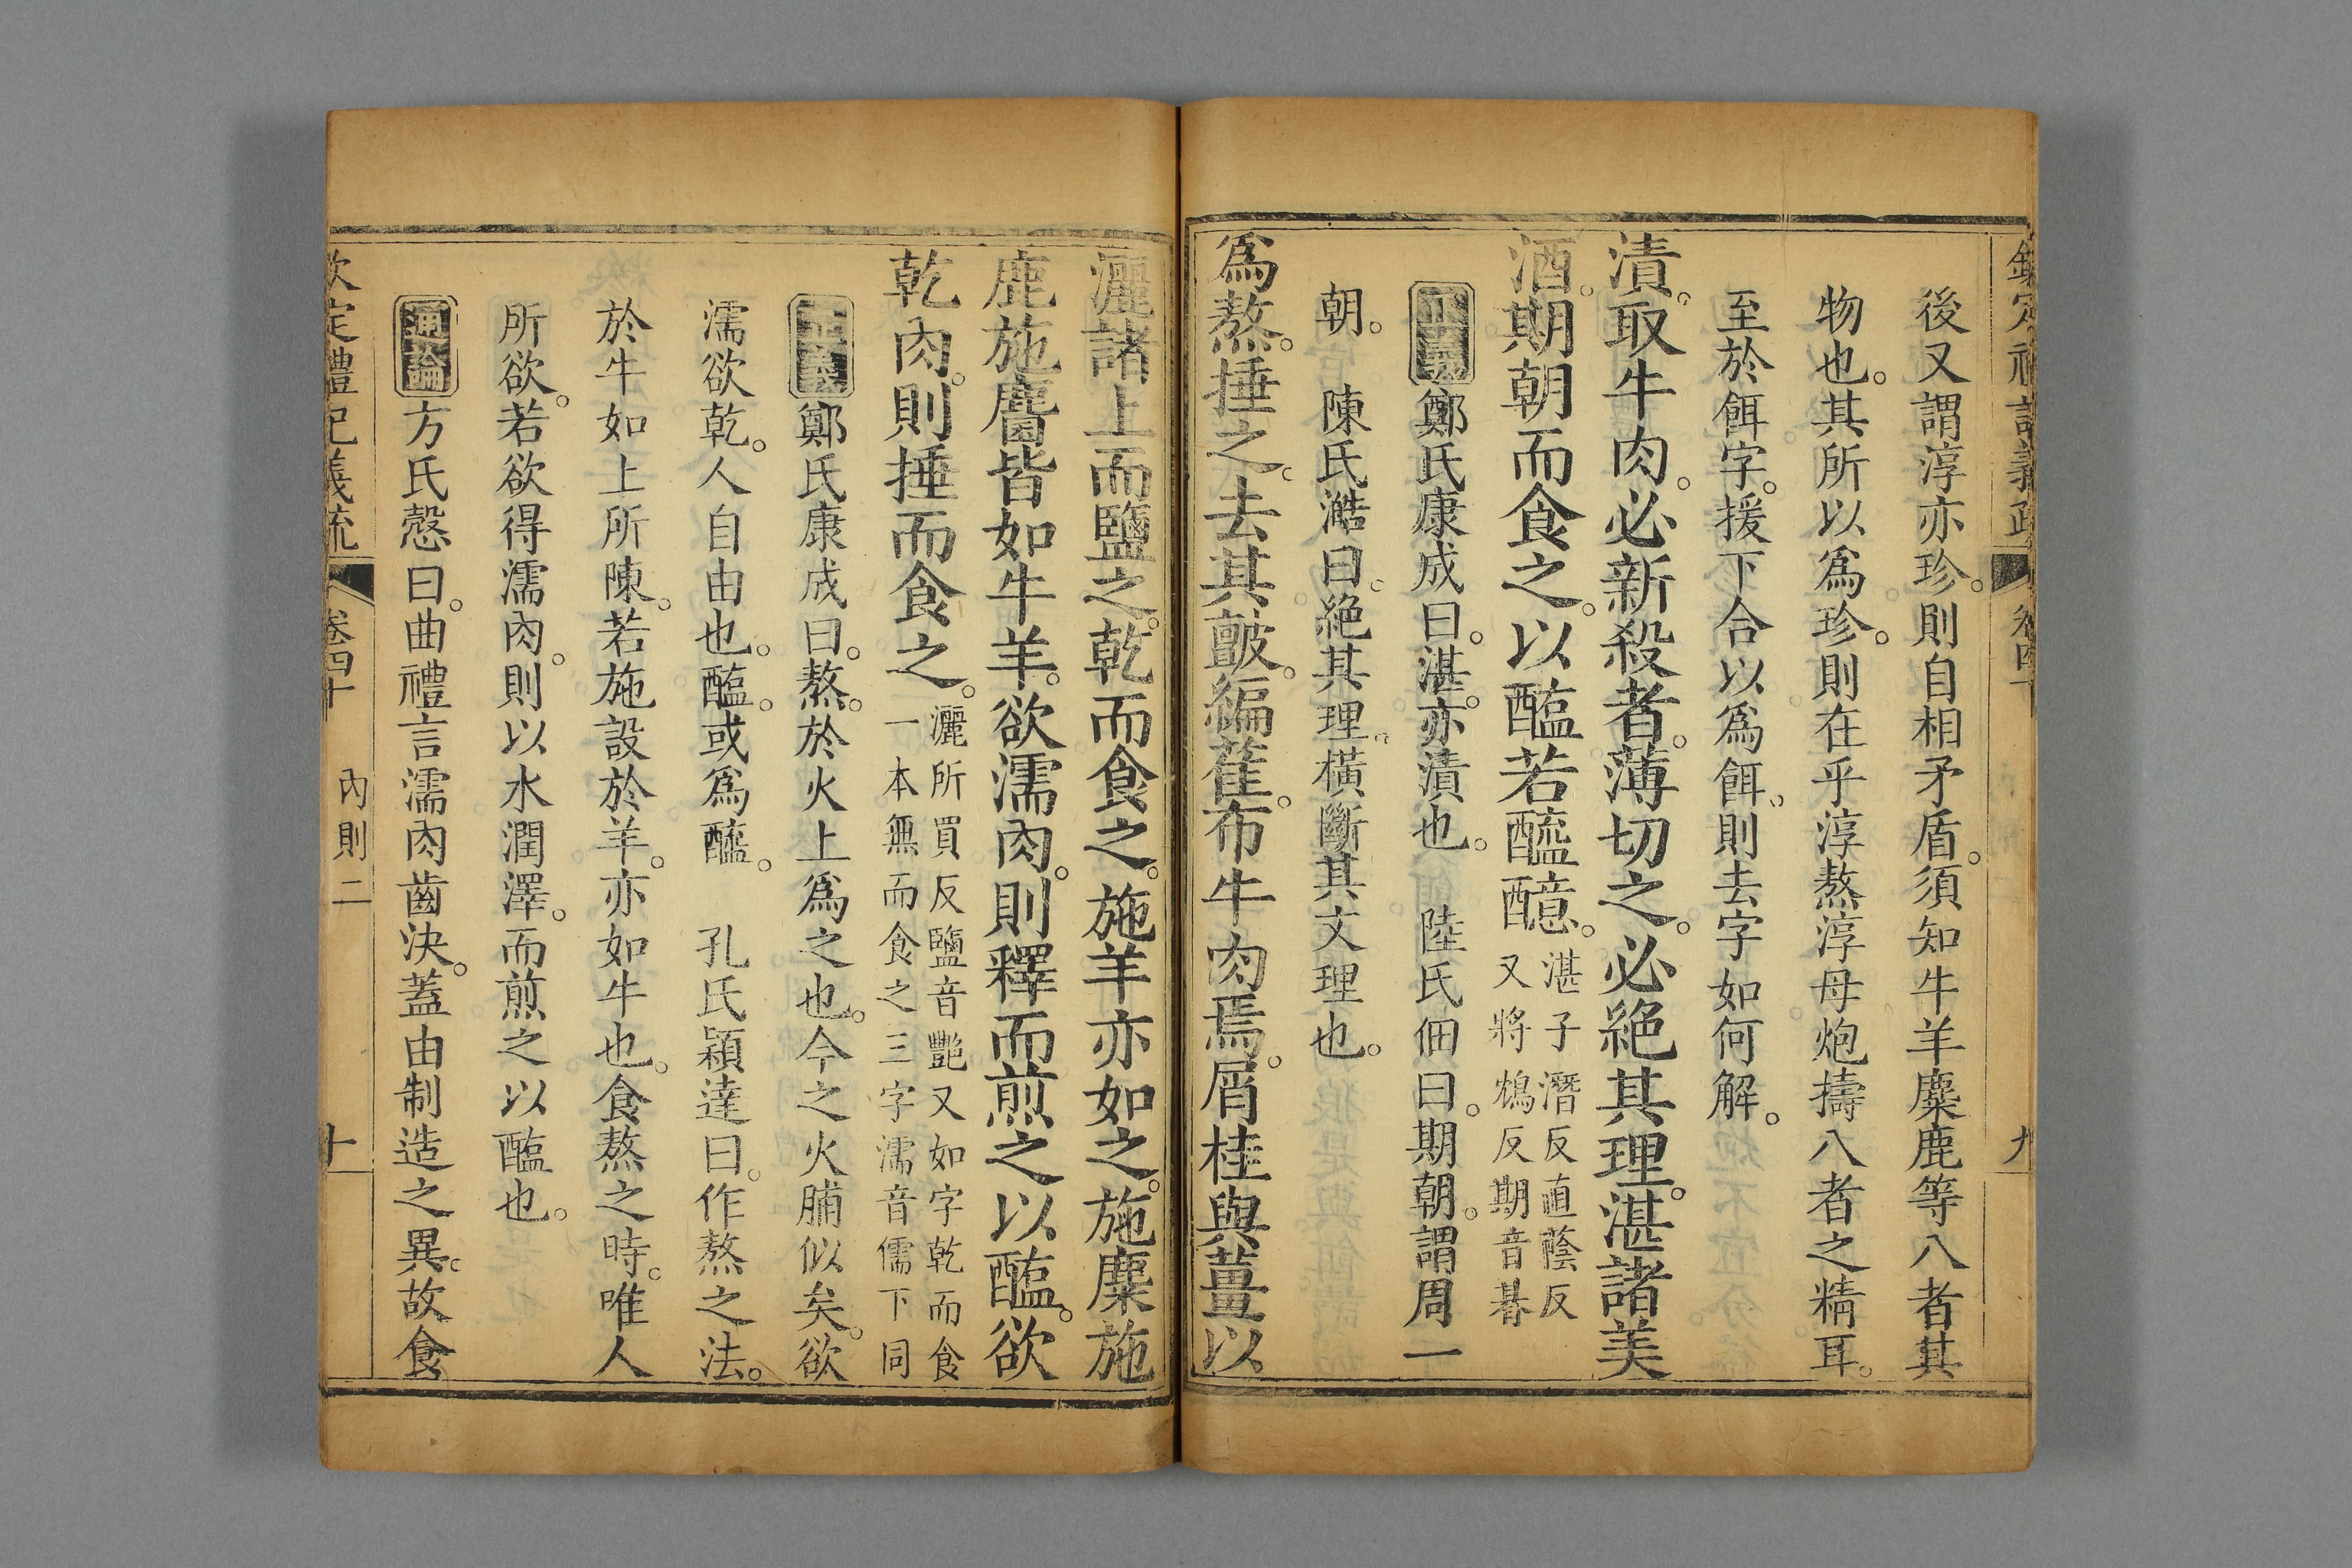 後又謂淳亦珍。則自相矛盾。須知牛羊麋鹿等八者其
物也。其所以爲珍。則在乎淳熬淳母炮擣八者之精耳。
至於餌字。援下合以爲餌。則去字如何解。
漬。取牛肉。必新殺者。薄切之。必絕其理。湛諸美
酒。期朝而食之。以醢若醯醷。湛子潛反直蔭反
又將鴆反期音朞
正義鄭氏康成曰。湛。亦漬也。 陸氏佃曰。期朝。謂周一
朝。 陳氏澔曰。絕其理。橫斷其文理也。
爲熬。捶之。去其皽。編萑。布牛肉焉。屑桂與薑以
灑諸上而鹽之。乾而食之。施羊亦如之。施麋施
鹿施麕皆如牛羊。欲濡肉。則釋而煎之以醢。欲
乾肉。則捶而食之。灑所買反鹽音艷又如字乾而食
一本無而食之三字濡音儒下同
正義鄭氏康成曰。熬。於火上爲之也。今之火脯似矣。欲
濡欲乾。人自由也。醢。或爲醯。 孔氏穎達曰。作熬之法。
於牛如上所陳。若施設於羊。亦如牛也。食熬之時。唯人
所欲。若欲得濡肉。則以水潤澤。而煎之以醢也。
通論方氏慤曰。曲禮言濡肉齒決。蓋由制造之異。故食
欽定禮記義疏 卷四十 內則二 十